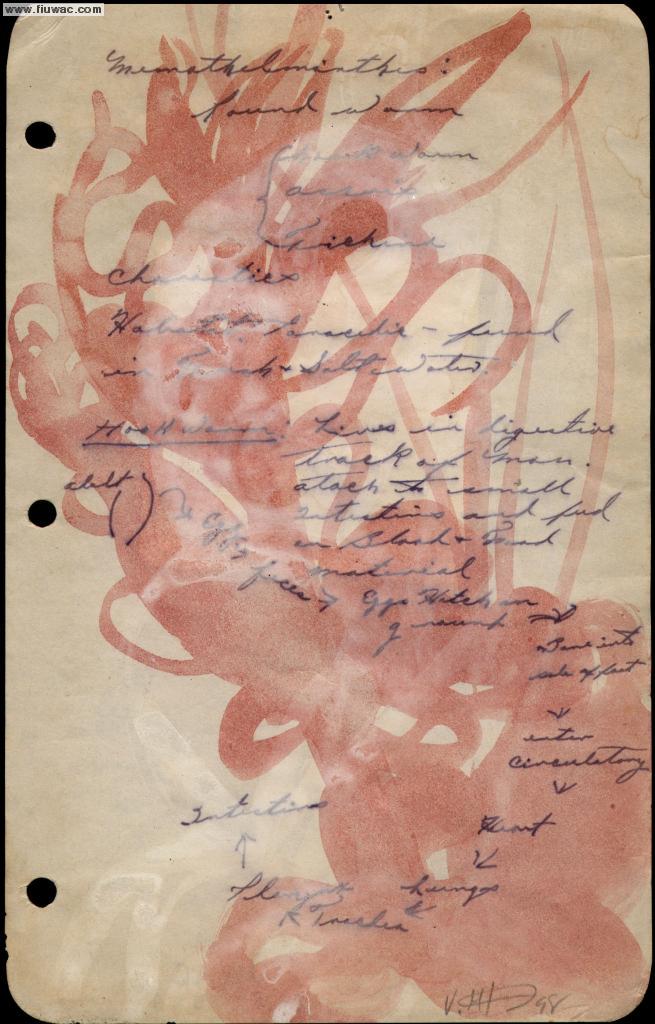 www.fiuwac.com
Nemathelminthes:
Round Worm
Hook Worm
ascaris
Trichina
Characteristics
Habitat: Parasitic - found
in Fresh & Salt water.
Hook Worm: Lives in digestive
track of man.
adult
atach to small
Intestins and feed
Eggs
on Blood & Food
material
feces → Eggs Hatch on
ground →
Bore into
sole of feet
enter
circulatory
Intestins
Heart
Lungs
& Trachea